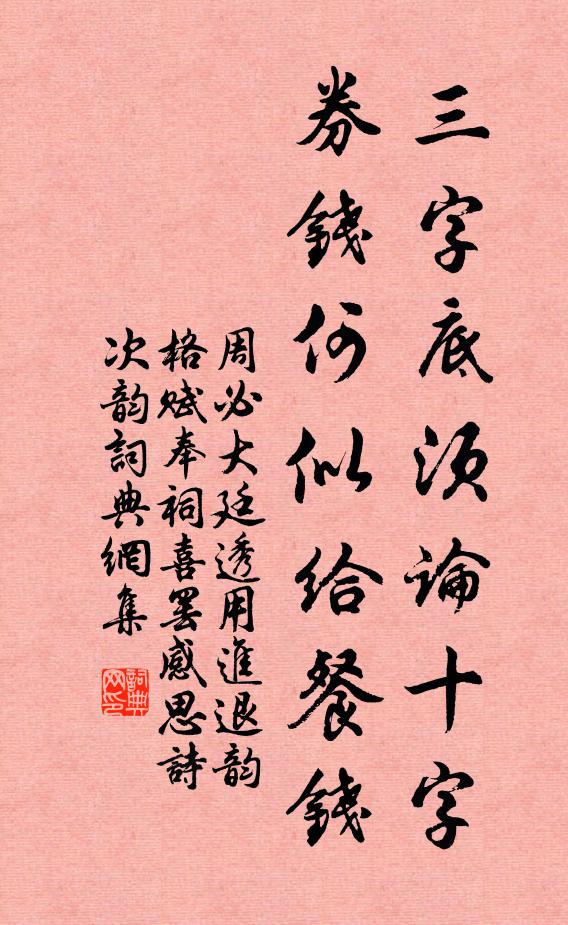 三字底須論十字
券錢何似給餐錢
周必大廷透用進退韵
格赋奉祠喜罢感思詩
次韵詞典網集
詞典网印